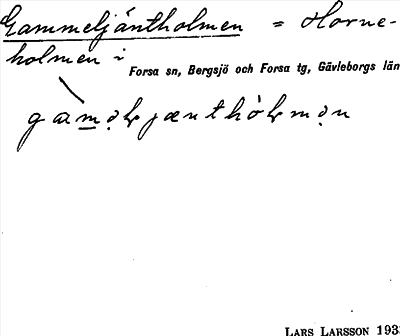 Gammeljäntholmen = Horne-
holmen i
Forsa sn, Bergsjö och Forsa tg, Gävleborgs län
LARS LARSSON 193